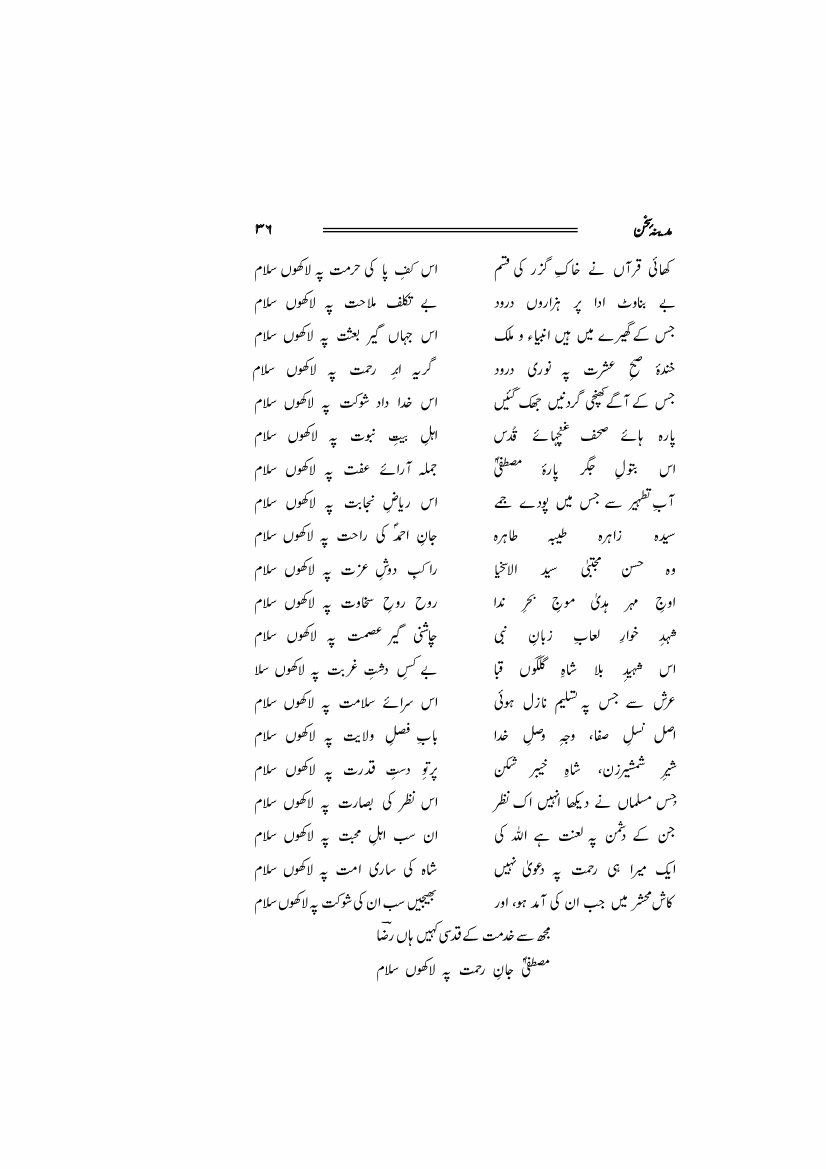 مدینہ سخن ۳۶
کھائی قرآں نے خاکِ گزر کی قسم اس کفِ پا کی حرمت پہ لاکھوں سلام
بے بناوٹ ادا پر ہزاروں درود بے تکلف ملاحت پہ لاکھوں سلام
جس کے گھیرے میں ہیں انبیاء و ملک اس جہاں گیر بعثت پہ لاکھوں سلام
خندۂ صبحِ عشرت پہ نوری درود گریہ ابرِ رحمت پہ لاکھوں سلام
جس کے آگے کھنچی گردنیں جھک گئیں اس خدا داد شوکت پہ لاکھوں سلام
پارہ ہائے صحف غنچہائے قُدس اہلِ بیتِ نبوت پہ لاکھوں سلام
اس بتولِ جگر پارۂ مصطفیٰؐ جملہ آرائے عفت پہ لاکھوں سلام
آبِ تطہیر سے جس میں پودے جمے اس ریاضِ نجابت پہ لاکھوں سلام
سیدہ زاہرہ طیبہ طاہرہ جانِ احمدؐ کی راحت پہ لاکھوں سلام
وہ حسن مجتبیٰ سید الاسخیا راکبِ دوشِ عزت پہ لاکھوں سلام
اوجِ مہر ہدیٰ موجِ بحرِ ندا روح روحِ سخاوت پہ لاکھوں سلام
شہدِ خوارِ لعابِ زبانِ نبی چاشنی گیر عصمت پہ لاکھوں سلام
اس شہیدِ بلا شاہِ گلگوں قبا بے کسِ دشتِ غربت پہ لاکھوں سلا
عرش سے جس پہ تسلیم نازل ہوئی اس سرائے سلامت پہ لاکھوں سلام
اصل نسلِ صفا، وجہِ وصلِ خدا بابِ فصلِ ولایت پہ لاکھوں سلام
شیرِ شمشیرزن، شاہِ خیبر شکن پرتوِ دستِ قدرت پہ لاکھوں سلام
جس مسلماں نے دیکھا انہیں اک نظر اس نظر کی بصارت پہ لاکھوں سلام
جن کے دشمن پہ لعنت ہے اللہ کی ان سب اہلِ محبت پہ لاکھوں سلام
ایک میرا ہی رحمت پہ دعویٰ نہیں شاہ کی ساری امت پہ لاکھوں سلام
کاش محشر میں جب ان کی آمد ہو، اور بھیجیں سب ان کی شوکت پہ لاکھوں سلام
مجھ سے خدمت کے قدسی کہیں ہاں رضاؔ
مصطفیٰؐ جانِ رحمت پہ لاکھوں سلام